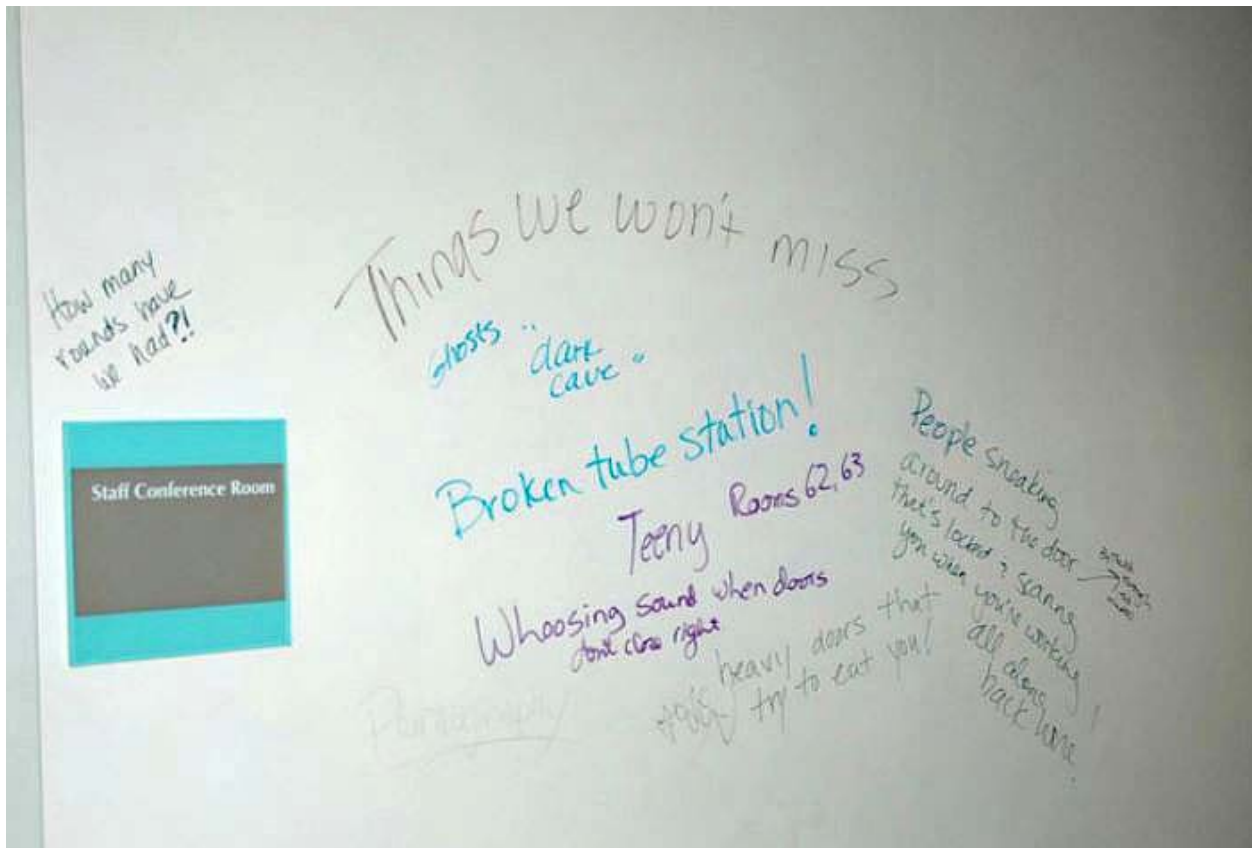 Things we won't miss
How many
rounds have
we had?!
Staff Conference Room
Ghosts
"dark
cave"
Broken tube station!
Teeny Rooms 62, 63
Whoosing sound when doors
don't close right
heavy doors that
try to eat you!
People sneaking
around to the door
that's locked & scaring
you when you're working
all along
back here!